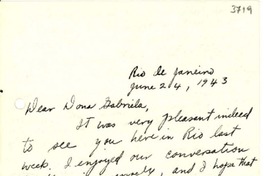 3719
Rio de Janeiro
June 24, 1943
Dear Dona Gabriela,
It was very pleasant indeed
to see you here in Rio last
week. I enjoyed our conversation
and I hope that